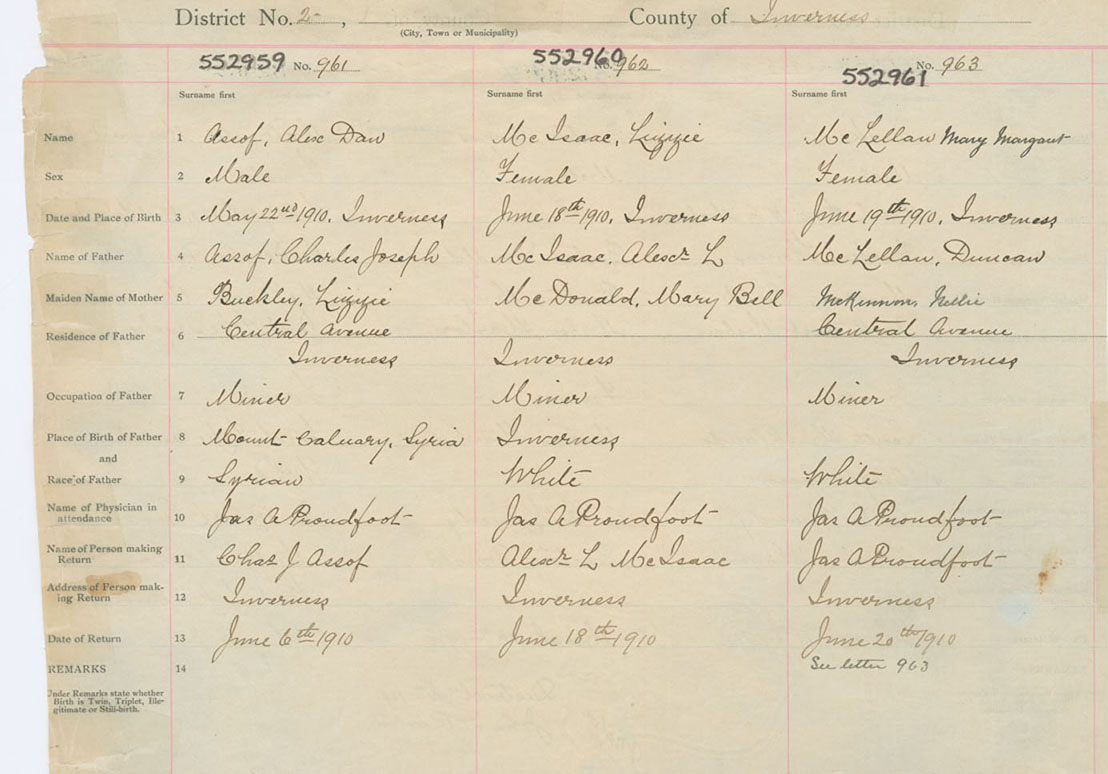 District No. 2 , County of Inverness
(City, Town or Municipality)
552959 No. 961 552960 No. 962 552961 No. 963
Surname first Surname first Surname first
Name 1 Assof, Alex Dan Mc Isaac, Lizzie Mc Lellan Mary Margaret
Sex 2 Male Female Female
Date and Place of Birth 3 May 22nd 1910, Inverness June 18th 1910, Inverness June 19th 1910, Inverness
Name of Father 4 Assof, Charles Joseph Mc Isaac, Alexr L Mc Lellan, Duncan
Maiden Name of Mother 5 Buckley, Lizzie McDonald, Mary Bell McKinnon, Nellie
Residence of Father 6 Central Avenue Central Avenue
Inverness Inverness Inverness
Occupation of Father 7 Miner Miner Miner
Place of Birth of Father 8 Mount Caluary, Syria Inverness
and
Race of Father 9 Syrian White White
Name of Physician in
attendance 10 Jas A Proudfoot Jas A Proudfoot Jas A Proudfoot
Name of Person making
Return 11 Chas J Assof Alexr L McIsaac Jas A Proudfoot
Address of Person mak-
ing Return 12 Inverness Inverness Inverness
Date of Return 13 June 6th 1910 June 18th 1910 June 20th 1910
REMARKS 14 See letter 963
Under Remarks state whether
Birth is Twin, Triplet, Ille-
gitimate or Still-birth.